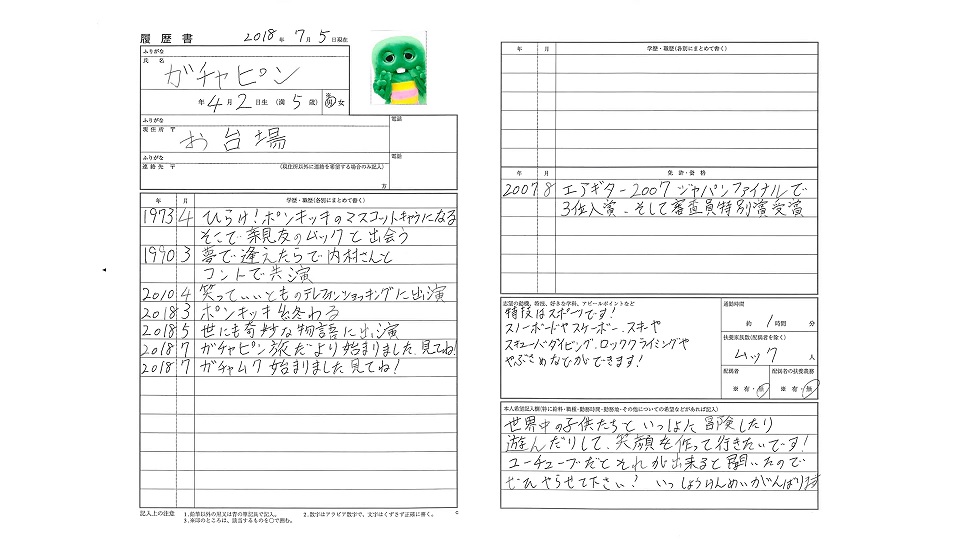 履歴書 2018年 7月 5日現在
ふりがな
氏名
ガチャピン
年 4月 2日生 (満 5 歳) ※ 男・女
ふりがな
電話
現住所 〒
お台場
ふりがな
電話
連絡先 〒 (現住所以外に連絡を希望する場合のみ記入)
方
年 月 学歴・職歴(各別にまとめて書く)
1973 4 ひらけ!ポンキッキのマスコットキャラになる
そこで親友のムックと出会う
1990 3 夢で逢えたらで内村さんと
コントで共演
2010 4 笑っていいとものテレフォンショッキングに出演
2018 3 ポンキッキ終わる
2018 5 世にも奇妙な物語に出演
2018 7 ガチャピン旅だより始まりました、見てね!
2018 7 ガチャムク始まりました見てね!
記入上の注意 1.鉛筆以外の黒又は青の筆記具で記入。 2.数字はアラビア数字で、文字はくずさず正確に書く。
3.※印のところは、該当するものを○で囲む。
年 月 学歴・職歴(各別にまとめて書く)
年 月 免許・資格
2007 8 エアギター2007ジャパンファイナルで
3位入賞、そして審査員特別賞受賞
志望の動機、特技、好きな学科、アピールポイントなど
特技はスポーツです!
スノーボードやスケーボー、スキーや
スキューバダイビング、ロッククライミングや
やぶさめなどができます!
通勤時間
約 1 時間 分
扶養家族数(配偶者を除く)
ムック 人
配偶者 配偶者の扶養義務
※ 有・無 ※ 有・無
本人希望記入欄(特に給料・職種・勤務時間・勤務地・その他についての希望などがあれば記入)
世界中の子供たちといっしょに冒険したり
遊んだりして、笑顔を作って行きたいです!
ユーチューブだとそれが出来ると聞いたので
ぜひやらせて下さい! いっしょうけんめいがんばります